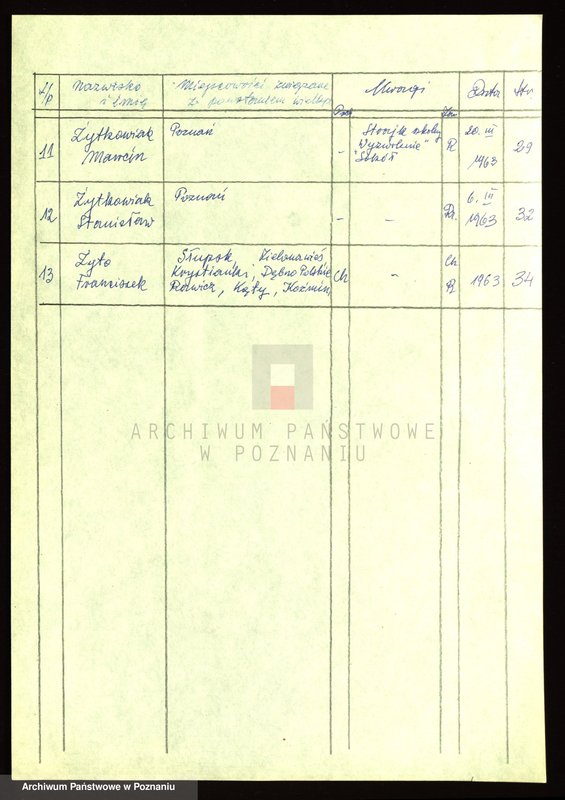 L/p Nazwisko i Imię Miejscowości związane z powstaniem wielkop. Uwagi Data Str
11 Żytkowiak Marcin Poznań - "Strajk szkolny R 20. III 1963 29
Wyzwolenie"
"Sokół
12 Żytkowiak Stanisław Poznań - - 6. III 1963 32
13 Żyto Franciszek Słupsk, Zielonawieś Ch - Ch R 1963 34
Krystianki, Dębno Polskie
Rawicz, Kąty, Koźmin
ARCHIWUM PAŃSTWOWE
W POZNANIU
Archiwum Państwowe w Poznaniu